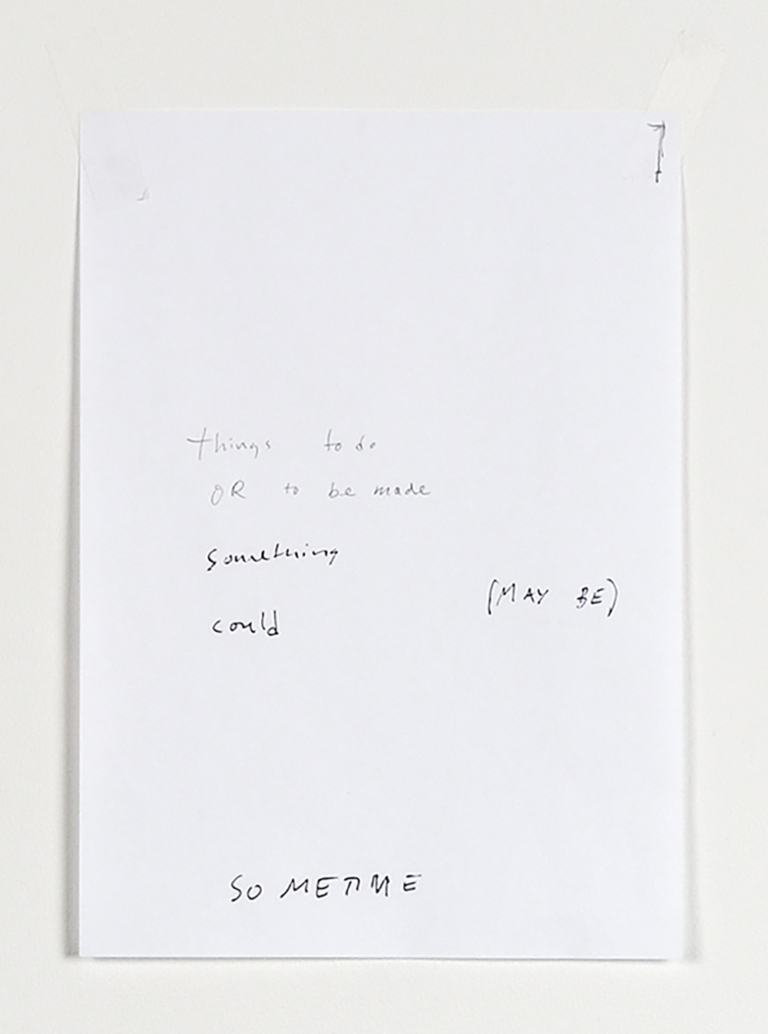 things to do
OR to be made
something
(MAY BE)
could
SOMETIME